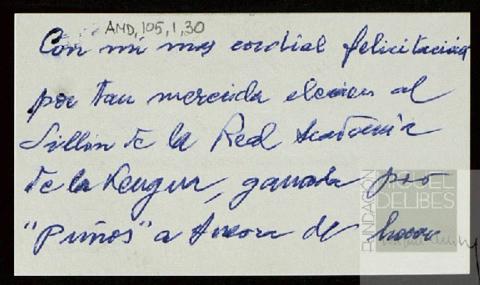 AMD,105,1,30
Con mi mas cordial felicitación
por tan merecida elección al
Sillón de la Real Academia
de la Lengua, ganada por
"puños" a fuerza de
FUNDACIÓN
MIGUEL
DELIBES